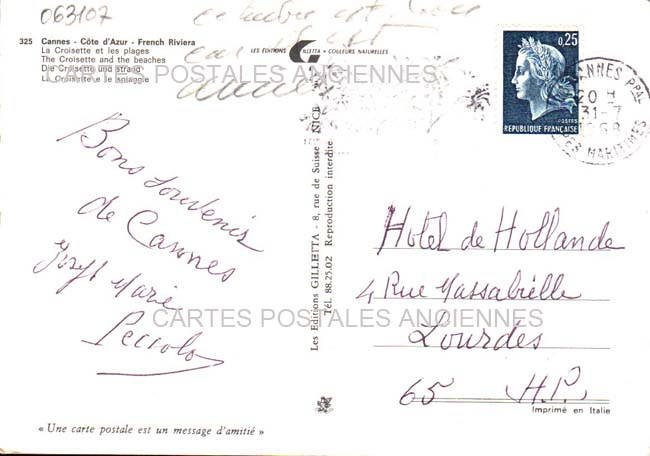 063107
325 Cannes - Côte d'Azur - French Riviera
La Croisette et les plages
The Croisette and the beaches
Die Croisette und strand
La Croisette e le spiaggie
LES EDITIONS GILLETTA - COULEURS NATURELLES
CARTES POSTALES ANCIENNES
0,25
POSTES
REPUBLIQUE FRANÇAISE
CANNES PPAL
20 H
31-7
1968
MARITIMES
Bons Souvenirs
de Cannes
Joseph Marie
Les Editions GILLETTA - 8, rue de Suisse - NICE
Tél. 88.25.02 Reproduction interdite
Hotel de Hollande
4 Rue Massabielle
Lourdes
65 H.P.
CARTES POSTALES ANCIENNES
Imprimé en Italie
« Une carte postale est un message d'amitié »